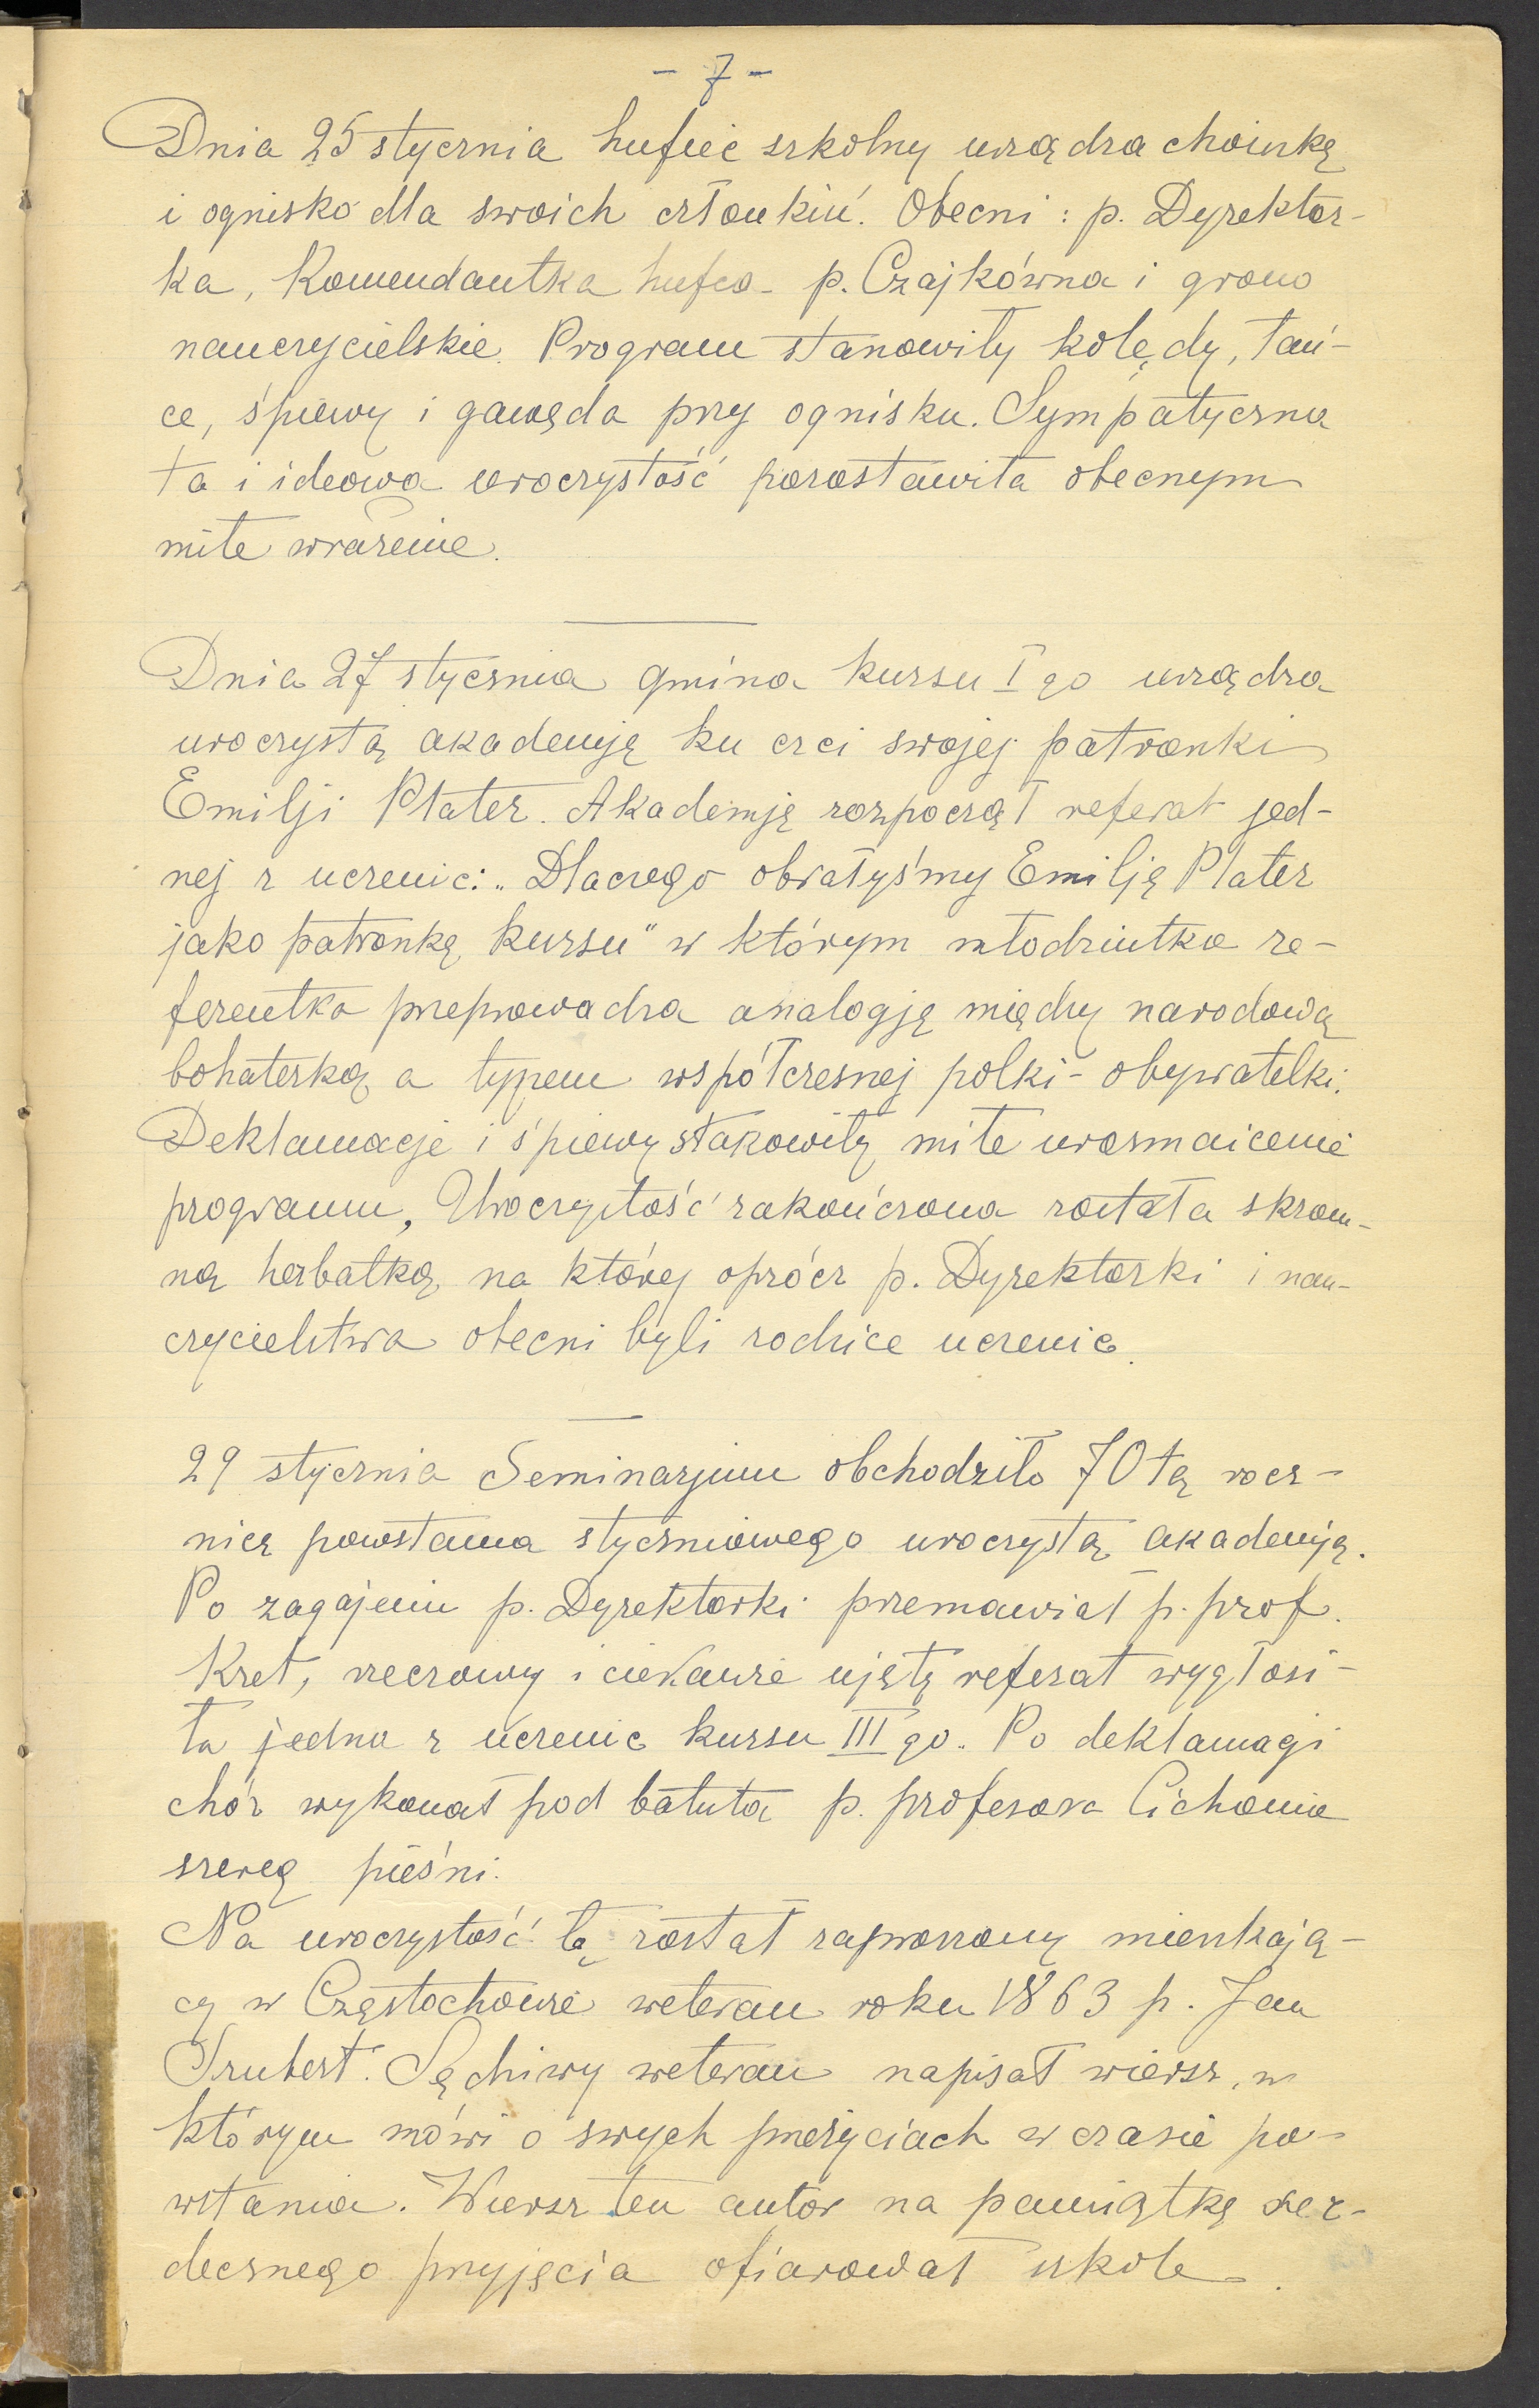 - 7 -
Dnia 25 stycznia hufiec szkolny urządza choinkę
i ognisko dla swoich członkiń. Obecni: p. Dyrektor-
ka, Komendantka hufca p. Czajkówna i grono
nauczycielskie. Program stanowiły kolędy, tań-
ce, śpiewy i gawęda przy ognisku. Sympatyczna
ta i ideowa uroczystość pozostawiła obecnym
miłe wrażenie.
Dnia 27 stycznia gmina kursu I go urządza
uroczystą akademję ku czci swojej patronki
Emilji Plater. Akademję rozpoczął referat jed-
nej z uczenic: „Dlaczego obrałyśmy Emilję Plater
jako patronkę kursu" w którym młodziutka re-
ferentka przeprowadza analogję między narodową
bohaterką a typem współczesnej polki - obywatelki.
Deklamacje i śpiewy stanowiły miłe urozmaicenie
programu, Uroczystość zakończona została skrom-
ną herbatką, na której oprócz p. Dyrektorki i nau-
czycielstwa obecni byli rodzice uczenic.
29 stycznia Seminarjum obchodziło 70 tą rocz-
nicę powstania styczniowego uroczystą akademją.
Po zagajeniu p. Dyrektorki przemawiał p. prof.
Kret, rzeczowy i ciekawie ujęty referat wygłosi-
ła jedna z uczenic kursu III go. Po deklamacji
chór wykonał pod batutą p. profesora Cichonia
szereg pieśni.
Na uroczystość tę został zaproszony mieszkają-
cy w Częstochowie weteran roku 1863 p. Jan
Szubert. Sędziwy weteran napisał wiersz, w
którym mówi o swych przeżyciach w czasie po-
wstania. Wiersz ten autor na pamiątkę ser-
decznego przyjęcia ofiarował szkole.